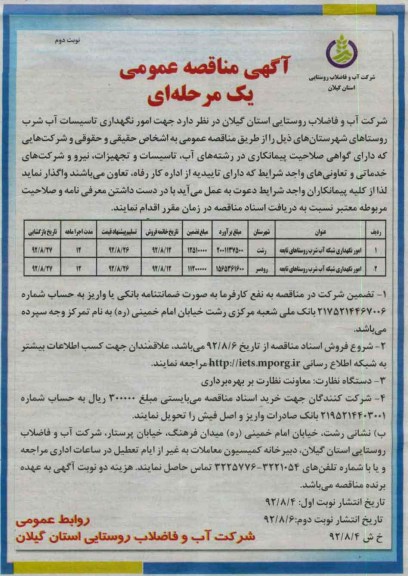 نوبت دوم
شرکت آب و فاضلاب روستایی
استان گیلان
آگهی مناقصه عمومی
یک مرحله‌ای
شرکت آب و فاضلاب روستایی استان گیلان در نظر دارد جهت امور نگهداری تاسیسات آب شرب
روستاهای شهرستان‌های ذیل را از طریق مناقصه عمومی به اشخاص حقیقی و حقوقی و شرکت‌هایی
که دارای گواهی صلاحیت پیمانکاری در رشته‌های آب، تاسیسات و تجهیزات، نیرو و شرکت‌های
خدماتی و تعاونی‌های واجد شرایط که دارای تاییدیه از اداره کار رفاه، تعاون می‌باشند واگذار نماید
لذا از کلیه پیمانکاران واجد شرایط دعوت به عمل می‌آید با در دست داشتن معرفی نامه و صلاحیت
مربوطه معتبر نسبت به دریافت اسناد مناقصه در زمان مقرر اقدام نمایند.
ردیف عنوان شهرستان مبلغ برآورد مبلغ تضمین تاریخ خاتمه فروش تسلیم پیشنهاد قیمت مدت اجرا ماهه تاریخ بازگشایی
۱ امور نگهداری شبکه آب شرب روستاهای تابعه رشت ۲۰۰۱۱۳۷۵۰۰ ۱۲۵۱۰۰۰۰ ۹۲/۸/۱۴ ۹۲/۸/۲۶ ۱۲ ۹۲/۸/۲۷
۲ امور نگهداری شبکه آب شرب روستاهای تابعه رودسر ۱۵۶۵۳۶۱۶۰۰ ۱۱۲۰۰۰۰۰ ۹۲/۸/۱۴ ۹۲/۸/۲۶ ۱۲ ۹۲/۸/۲۷
۱- تضمین شرکت در مناقصه به نفع کارفرما به صورت ضمانتنامه بانکی یا واریز به حساب شماره
۲۱۷۵۲۱۴۴۶۷۰۰۶ بانک ملی شعبه مرکزی رشت خیابان امام خمینی (ره) به نام تمرکز وجه سپرده
می‌باشد.
۲- شروع فروش اسناد مناقصه از تاریخ ۹۲/۸/۶ می‌باشد. علاقمندان جهت کسب اطلاعات بیشتر
به شبکه اطلاع رسانی http://iets.mporg.ir مراجعه نمایند.
۳- دستگاه نظارت: معاونت نظارت بر بهره‌برداری
۴- شرکت کنندگان جهت خرید اسناد مناقصه می‌بایستی مبلغ ۳۰۰۰۰۰ ریال به حساب شماره
۲۱۹۵۲۱۴۴۰۳۰۰۱ بانک صادرات واریز و اصل فیش را تحویل نمایند.
ب) نشانی رشت، خیابان امام خمینی (ره) میدان فرهنگ، خیابان پرستار، شرکت آب و فاضلاب
روستایی استان گیلان، دبیرخانه کمیسیون معاملات به غیر از ایام تعطیل در ساعات اداری مراجعه
و یا با شماره تلفن‌های ۳۲۲۱۰۵۴-۳۲۲۵۷۷۶ تماس حاصل نمایند. هزینه دو نوبت آگهی به عهده
برنده مناقصه می‌باشد.
تاریخ انتشار نوبت اول: ۹۲/۸/۴
تاریخ انتشار نوبت دوم: ۹۲/۸/۶
خ ش ۹۲/۸/۴
روابط عمومی
شرکت آب و فاضلاب روستایی استان گیلان